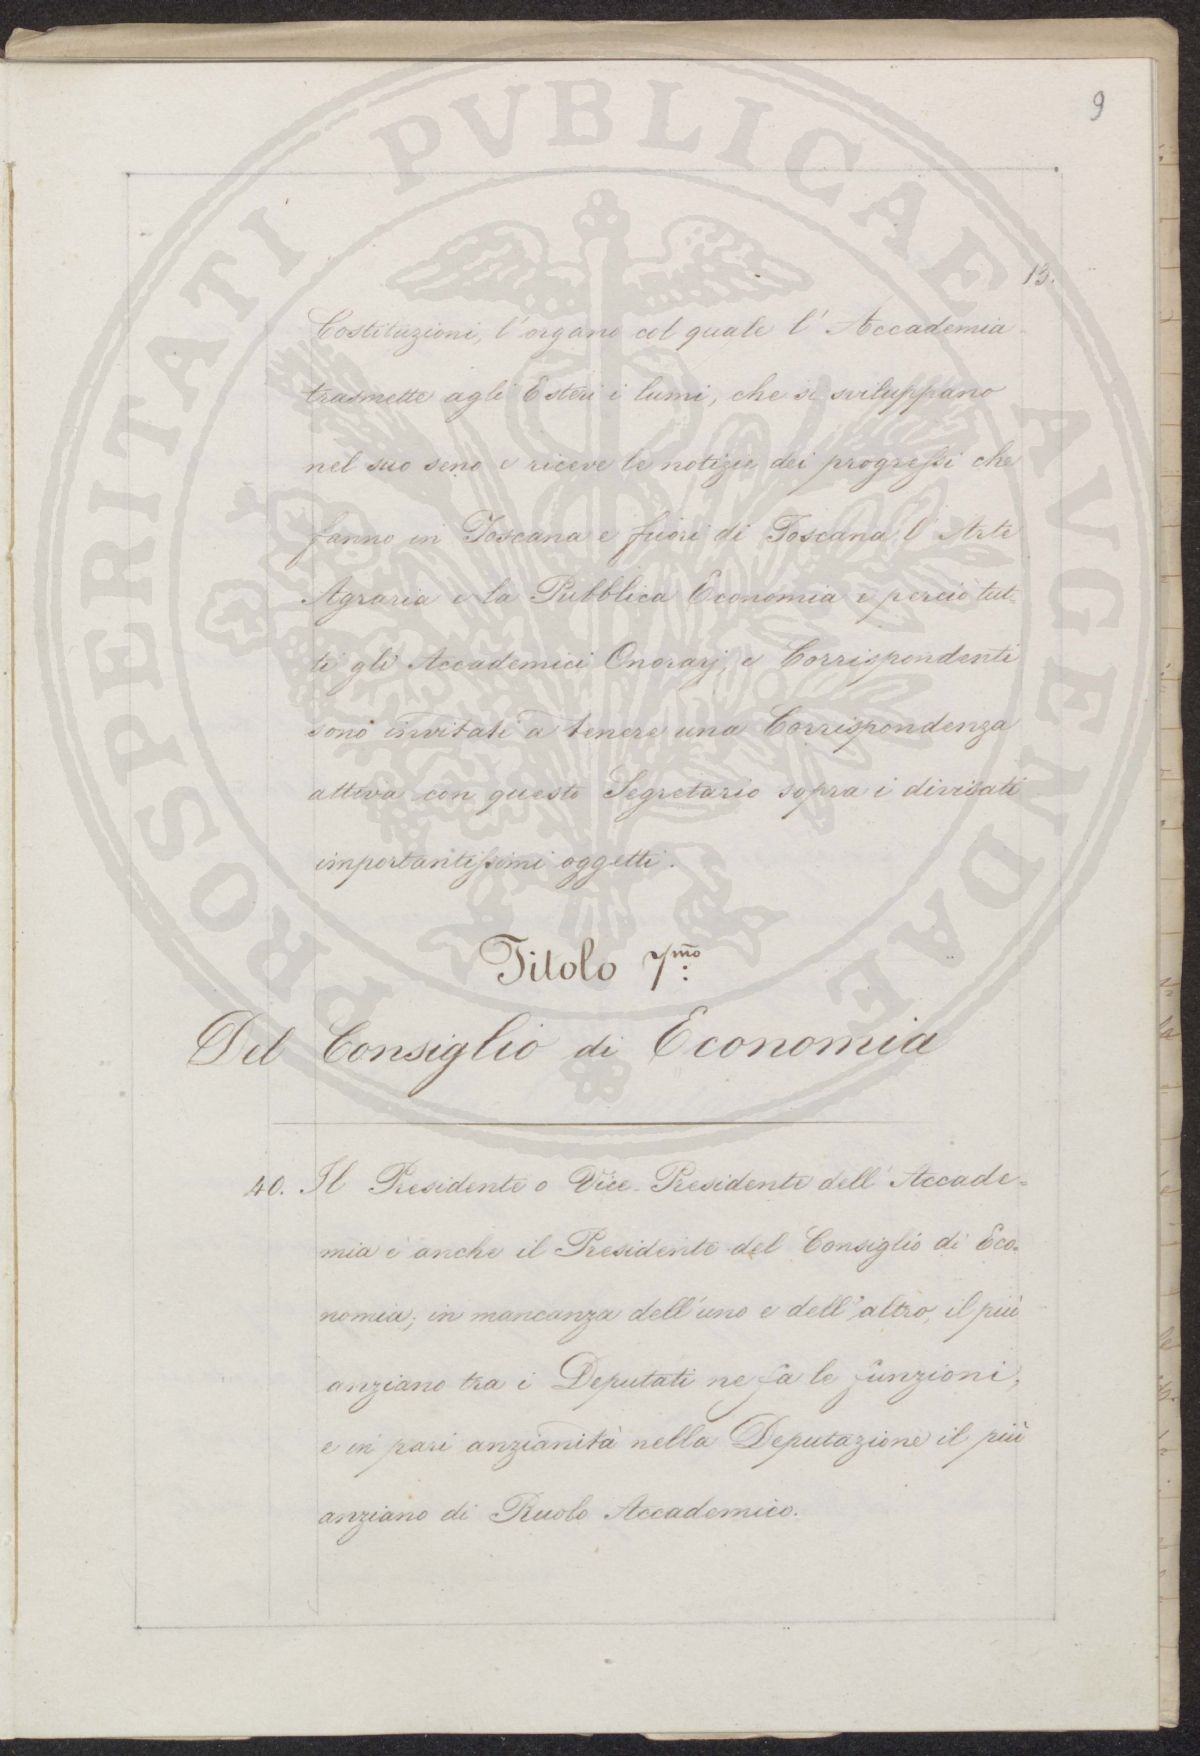 9
13.
Costituzioni, l'organo col quale l'Accademia
trasmette agli Esteri i lumi, che si sviluppano
nel suo seno e riceve le notizie dei progressi che
fanno in Toscana e fuori di Toscana l'Arte
Agraria e la Pubblica Economia e perciò tut=
ti gli Accademici Onorarj, e Corrispondenti
sono invitati a tenere una Corrispondenza
attiva con questo Segretario sopra i divisati
importantissimi oggetti.
Titolo 7mo:
Del Consiglio di Economia
40. Il Presidente o Vice-Presidente dell'Accade=
mia è anche il Presidente del Consiglio di Eco=
nomia; in mancanza dell'uno e dell'altro, il più
anziano tra i Deputati ne fa le funzioni,
e in pari anzianità nella Deputazione il più
anziano di Ruolo Accademico.
PROSPERITATI PVBLICAE AVGENDAE